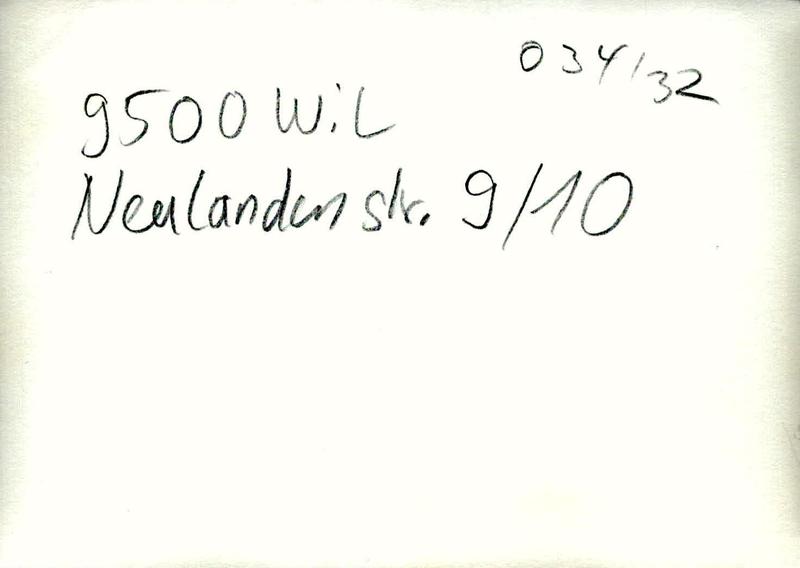 034/32
9500 Wil
Neulanden str. 9/10